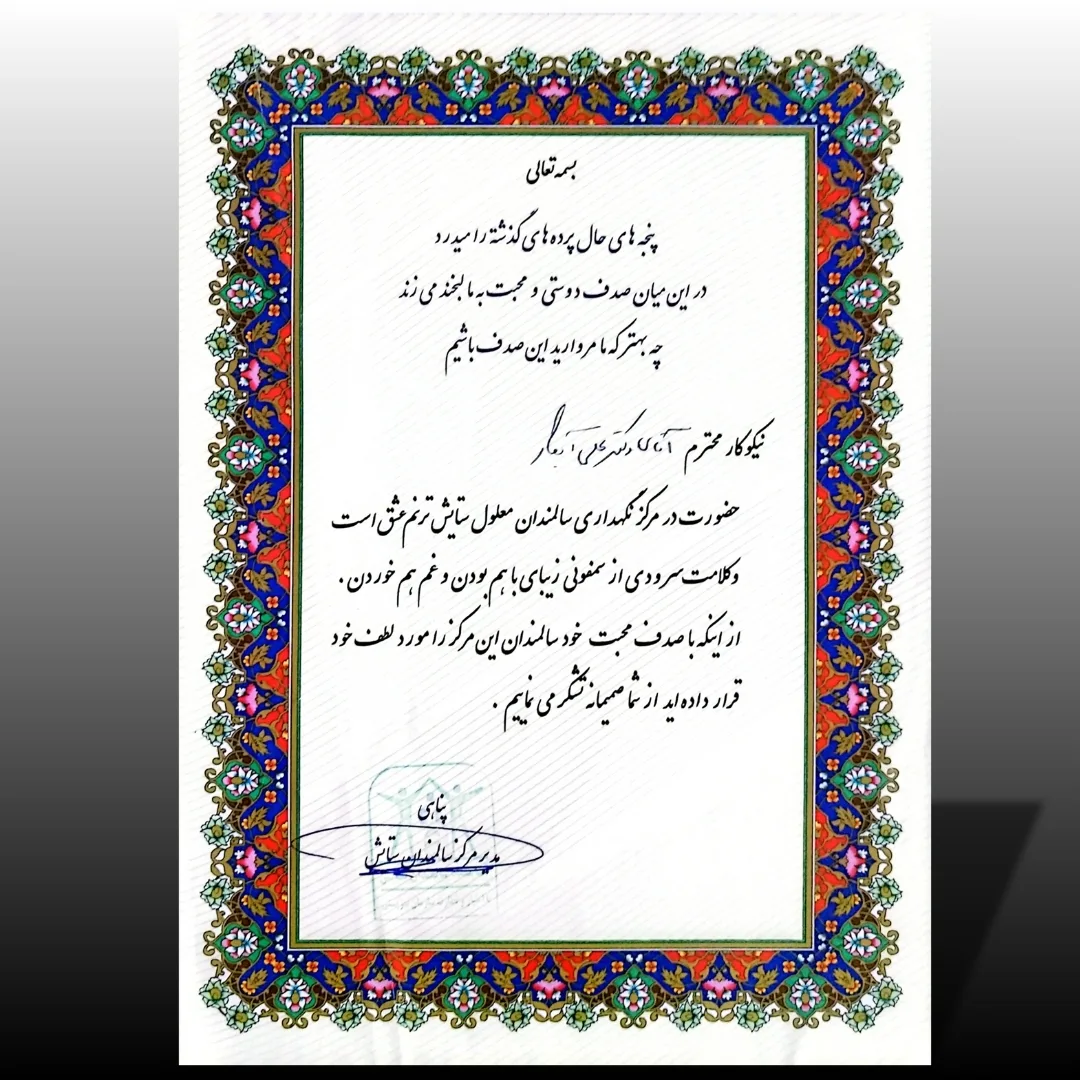 بسمه تعالی
پنجه های حال پرده های گذشته را میدرد
در این میان صدف دوستی و محبت به ما لبخند می زند
چه بهتر که ما مروارید این صدف باشیم
نیکوکار محترم آقای دکتر علی
حضورت در مرکز نگهداری سالمندان معلول ستایش ترنم عشق است
و کلامت سرودی از سمفونی زیبای با هم بودن و غم هم خوردن .
از اینکه با صدف محبت خود سالمندان این مرکز را مورد لطف خود
قرار داده اید از شما صمیمانه تشکر می نماییم .
پناهی
مدیر مرکز سالمندان ستایش